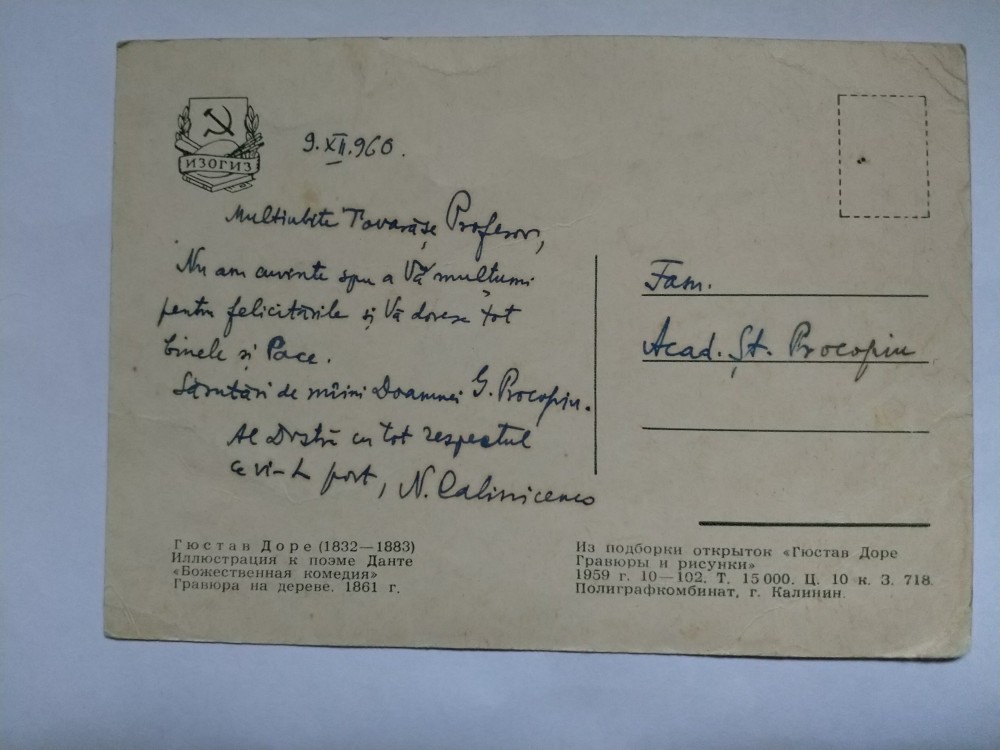 ИЗОГИЗ
9.XII.960.
Multiubite Tovarășe Profesor,
Nu am cuvinte spre a Vă mulțumi
pentru felicitările și Vă doresc tot
binele și Pace.
Sărutări de mîini Doamnei G. Procopiu.
Al Dvstră cu tot respectul
ce vi-l port, N. Calinicenco
Fam.
Acad. Șt. Procopiu
Гюстав Доре (1832—1883)
Иллюстрация к поэме Данте
«Божественная комедия»
Гравюра на дереве. 1861 г.
Из подборки открыток «Гюстав Доре
Гравюры и рисунки»
1959 г. 10—102. Т. 15 000. Ц. 10 к. З. 718.
Полиграфкомбинат, г. Калинин.